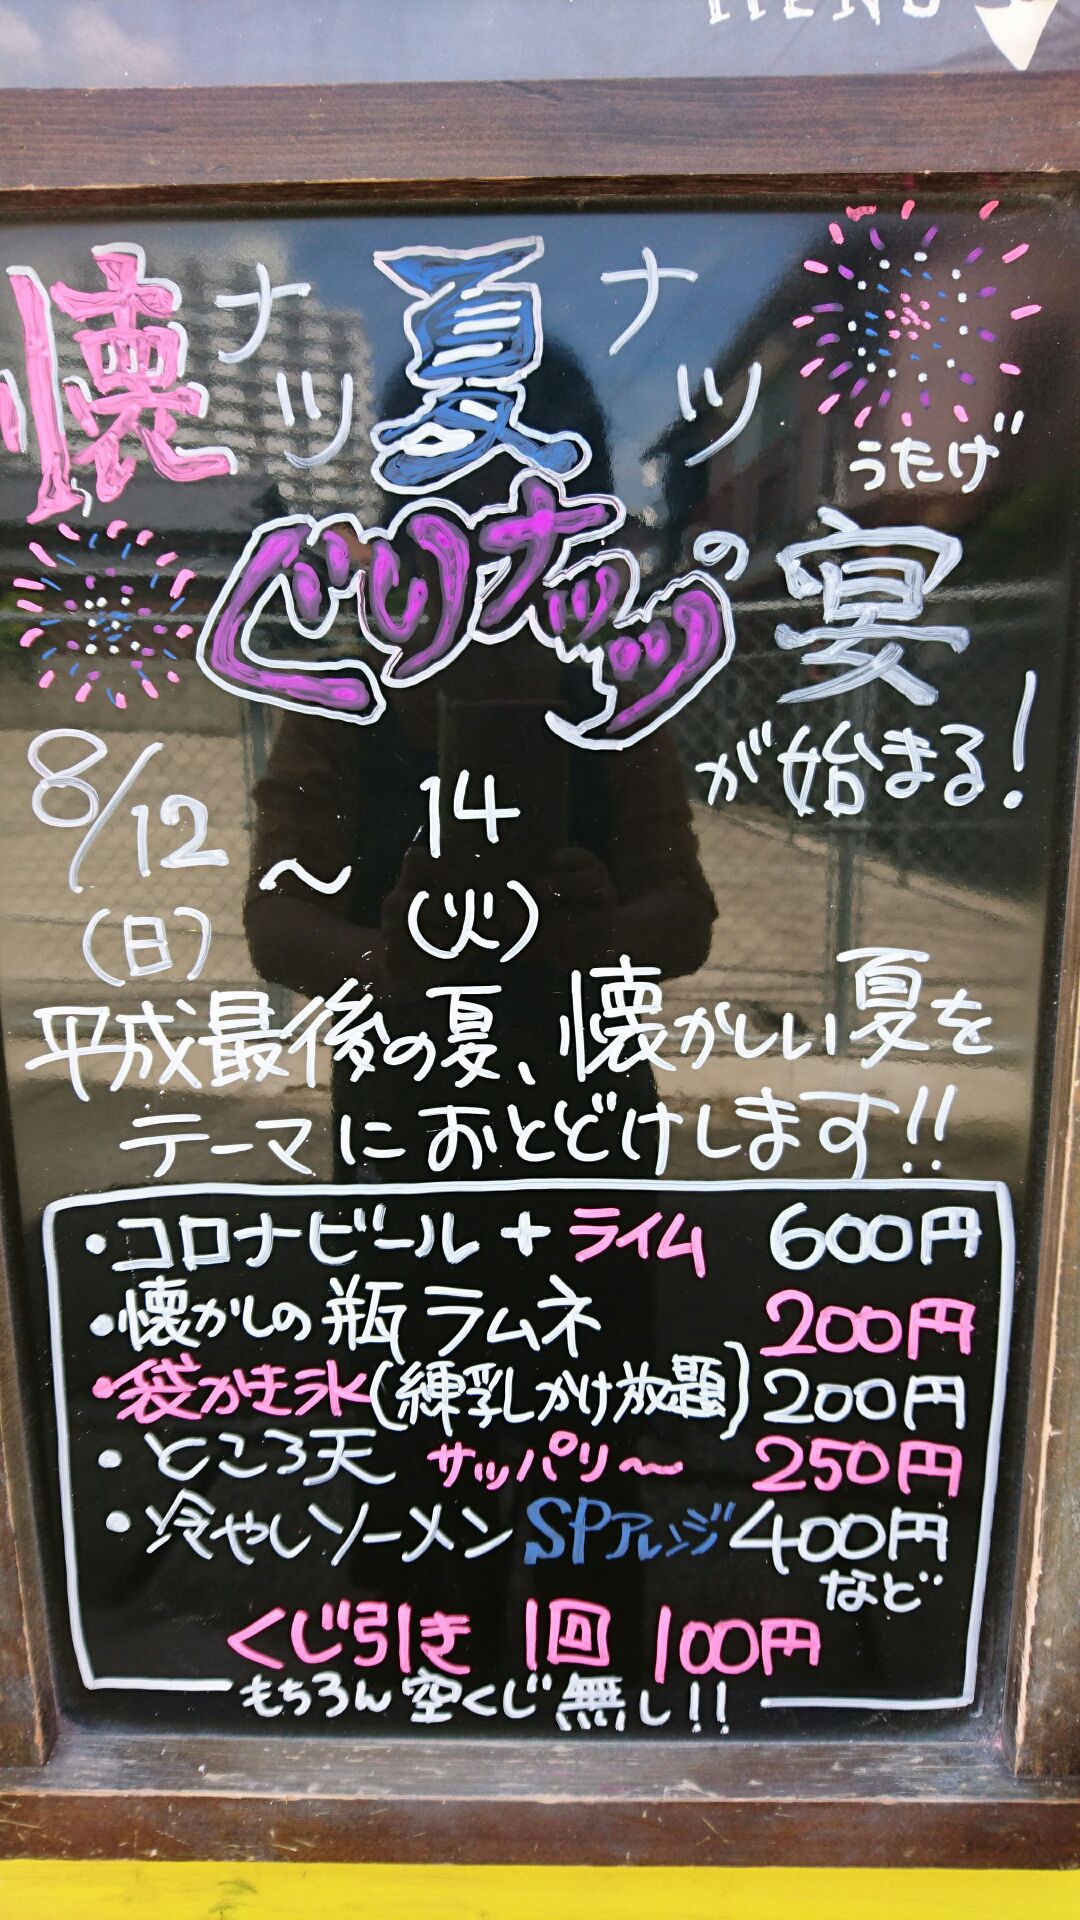 MENU
懐ナツ夏ナツ
ぐりナッツの宴
うたげ
が始まる!
8/12(日)〜14(火)
平成最後の夏、懐かしい夏を
テーマにおとどけします!!
・コロナビール+ライム 600円
・懐かしの瓶ラムネ 200円
・袋かき氷(練乳しかけ放題) 200円
・ところ天 サッパリ〜 250円
・冷やしソーメンSPアレンジ 400円
など
くじ引き 1回 100円
もちろん空くじ無し!!